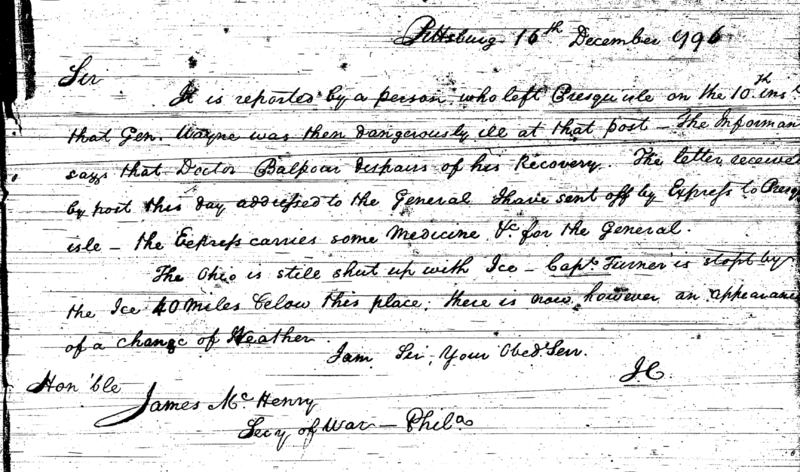 Pittsburg 16th December 1796
Sir
It is reported by a person who left Presqu'isle on the 10th inst
that Gen. Wayne was then dangerously ill at that post – The Informan
says that Doctor Balfour despairs of his Recovery. The letter received
by post this day addressed to the General I have sent off by Express to Presq
isle – the Express carries some Medicine &c. for the General.
The Ohio is still shut up with Ice – Capt. Turner is stopt by
the Ice 40 Miles below this place; there is now however an appearance
of a change of Weather.
I am Sir, Your Obed. Serv.
JC
Hon'ble
James McHenry
Secy of War – Phila